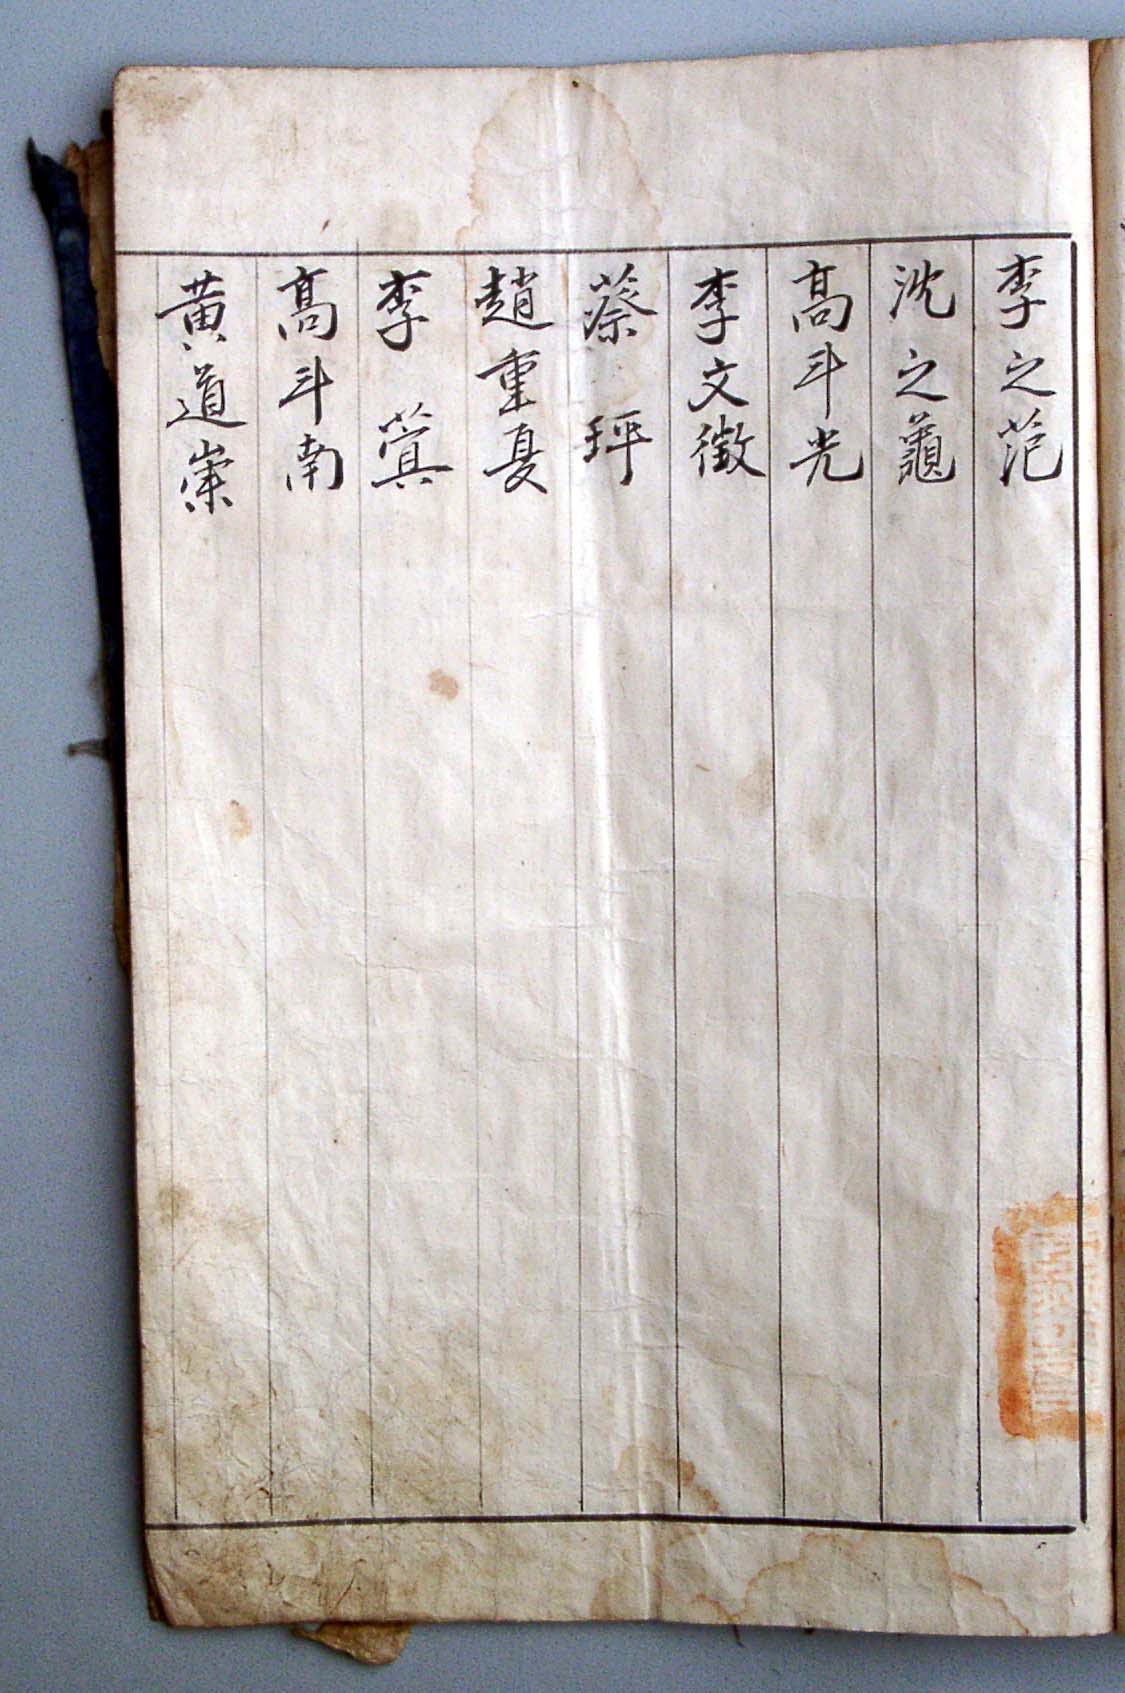 李之范
沈之
高斗光
李文徵
蔡玶
趙重夏
李蓂
高斗南
黃道崇